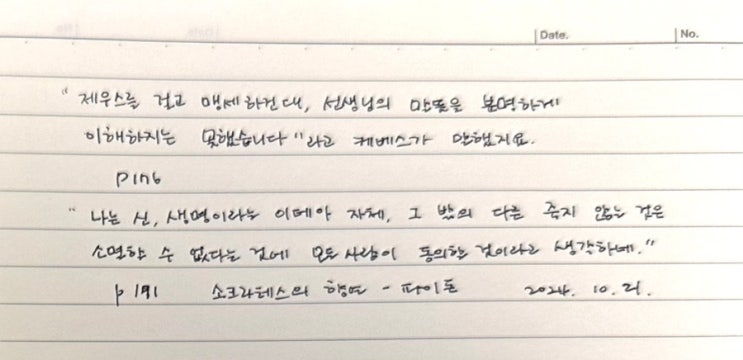 Date. No.
“ 제우스를 걸고 맹세하건대, 선생님의 말뜻을 분명하게
이해하지는 못했습니다”라고 케베스가 말했지요.
P176
“ 나는 신, 생명이라는 이데아 자체, 그 밖의 다른 죽지 않는 것은
소멸할 수 없다는 것에 모든 사람이 동의할 것이라고 생각하네.”
p 191 소크라테스의 향연 - 파이돈 2024. 10. 21.